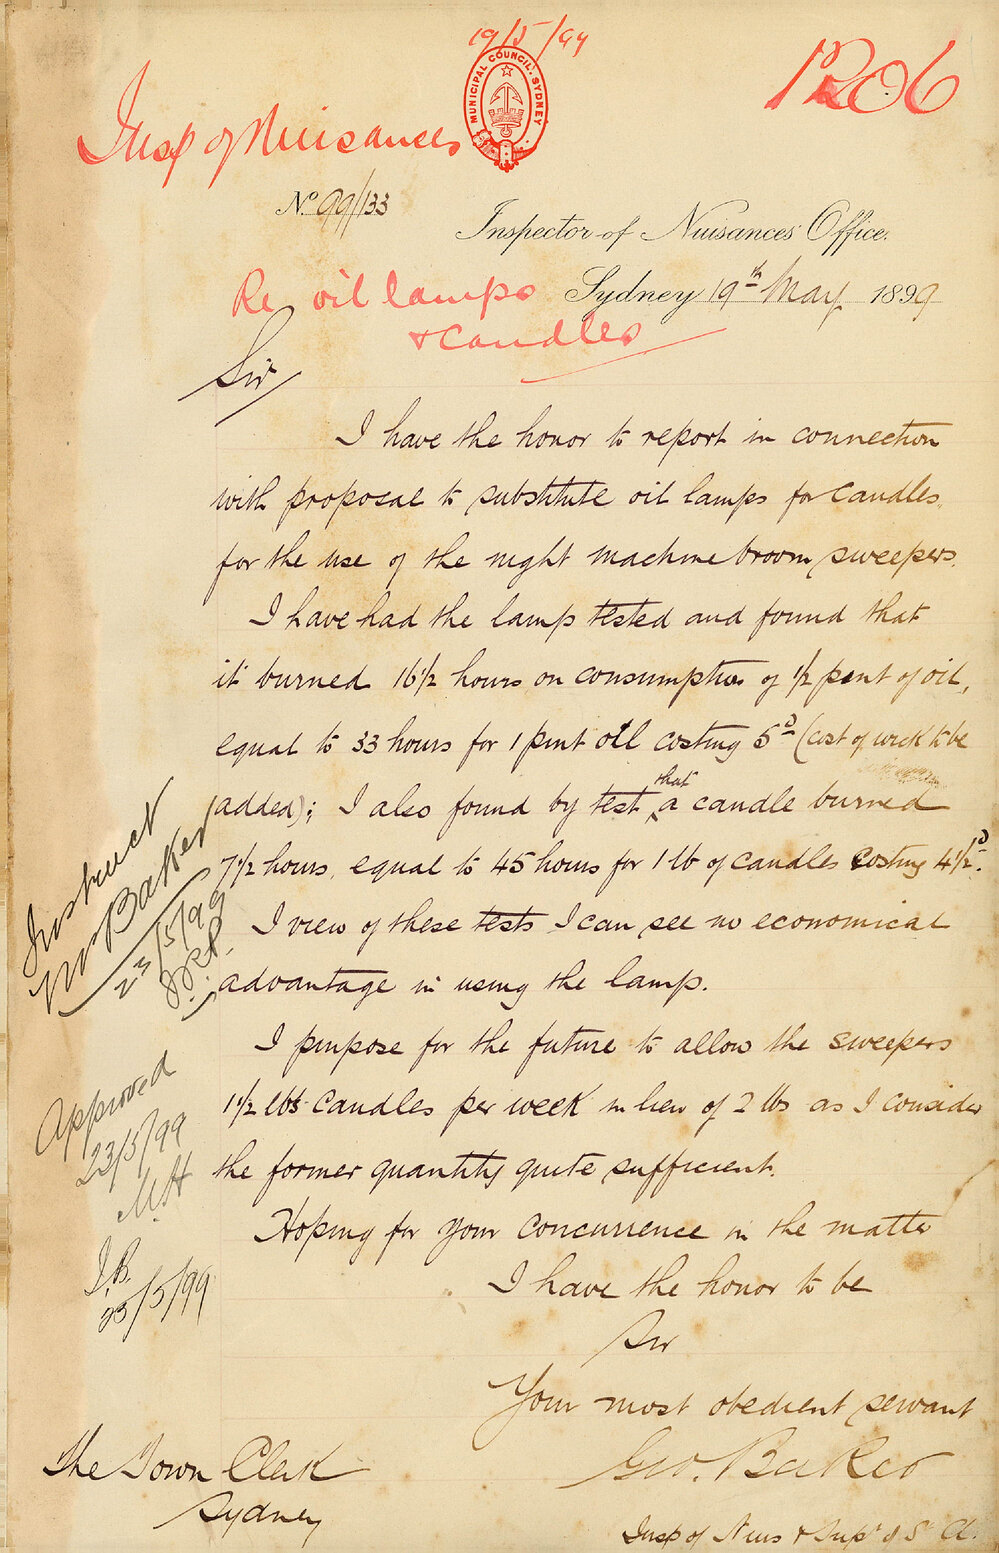 19/5/99
MUNICIPAL COUNCIL. SYDNEY
1206
Insp of Nuisances
No. 99/133
Inspector of Nuisances Office.
Re oil lamps
Sydney 19th May 1899
& Candles
Sir
I have the honor to report in connection
with proposal to substitute oil lamps for Candles
for the use of the night machine broom sweepers.
I have had the lamp tested and found that
it burned 16 1/2 hours on consumption of 1/2 pint of oil,
equal to 33 hours for 1 pint oil costing 5d (cost of wick to be
added); I also found by test that a candle burned
7 1/2 hours, equal to 45 hours for 1 lb of candles costing 4 1/2d.
I view of these tests I can see no economical
advantage in using the lamp.
I purpose for the future to allow the sweepers
1 1/2 lbs candles per week in lieu of 2 lbs as I consider
the former quantity quite sufficient.
Hoping for your concurrence in the matter
I have the honor to be
Sir
Your most obedient servant
Geo. Baker
Insp of Nuis & Supt of S. C.
The Town Clerk
Sydney
Instruct
Mr Baker
23/5/99
Approved
23/5/99
M.H
J.B.
25/5/99